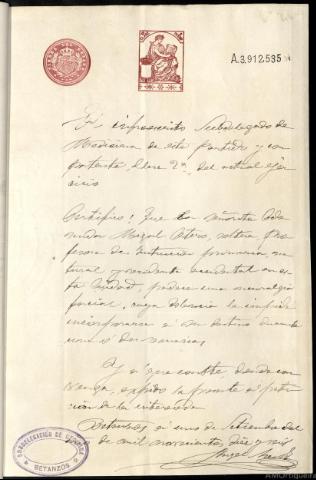 A.3.912.535
El infrascrito Subdelegado de
Medicina de este partido y con
patente clase 2ª del actual ejer
cicio
Certifico: Que la Señorita
Miguel Otero, soltera, Pro
fesora de Instrucción primaria, na
tural y residente accidental en es
ta Ciudad, padece una neuralgia
facial, cuya dolencia la impide
incorporarse a su destino durante
uno o dos semanas.
Y a que conste donde con
venga, expido la presente a peti
ción de la interesada
Betanzos a uno de Setiembre del
de mil novecientos diez y seis
SUBDELEGACION DE
BETANZOS